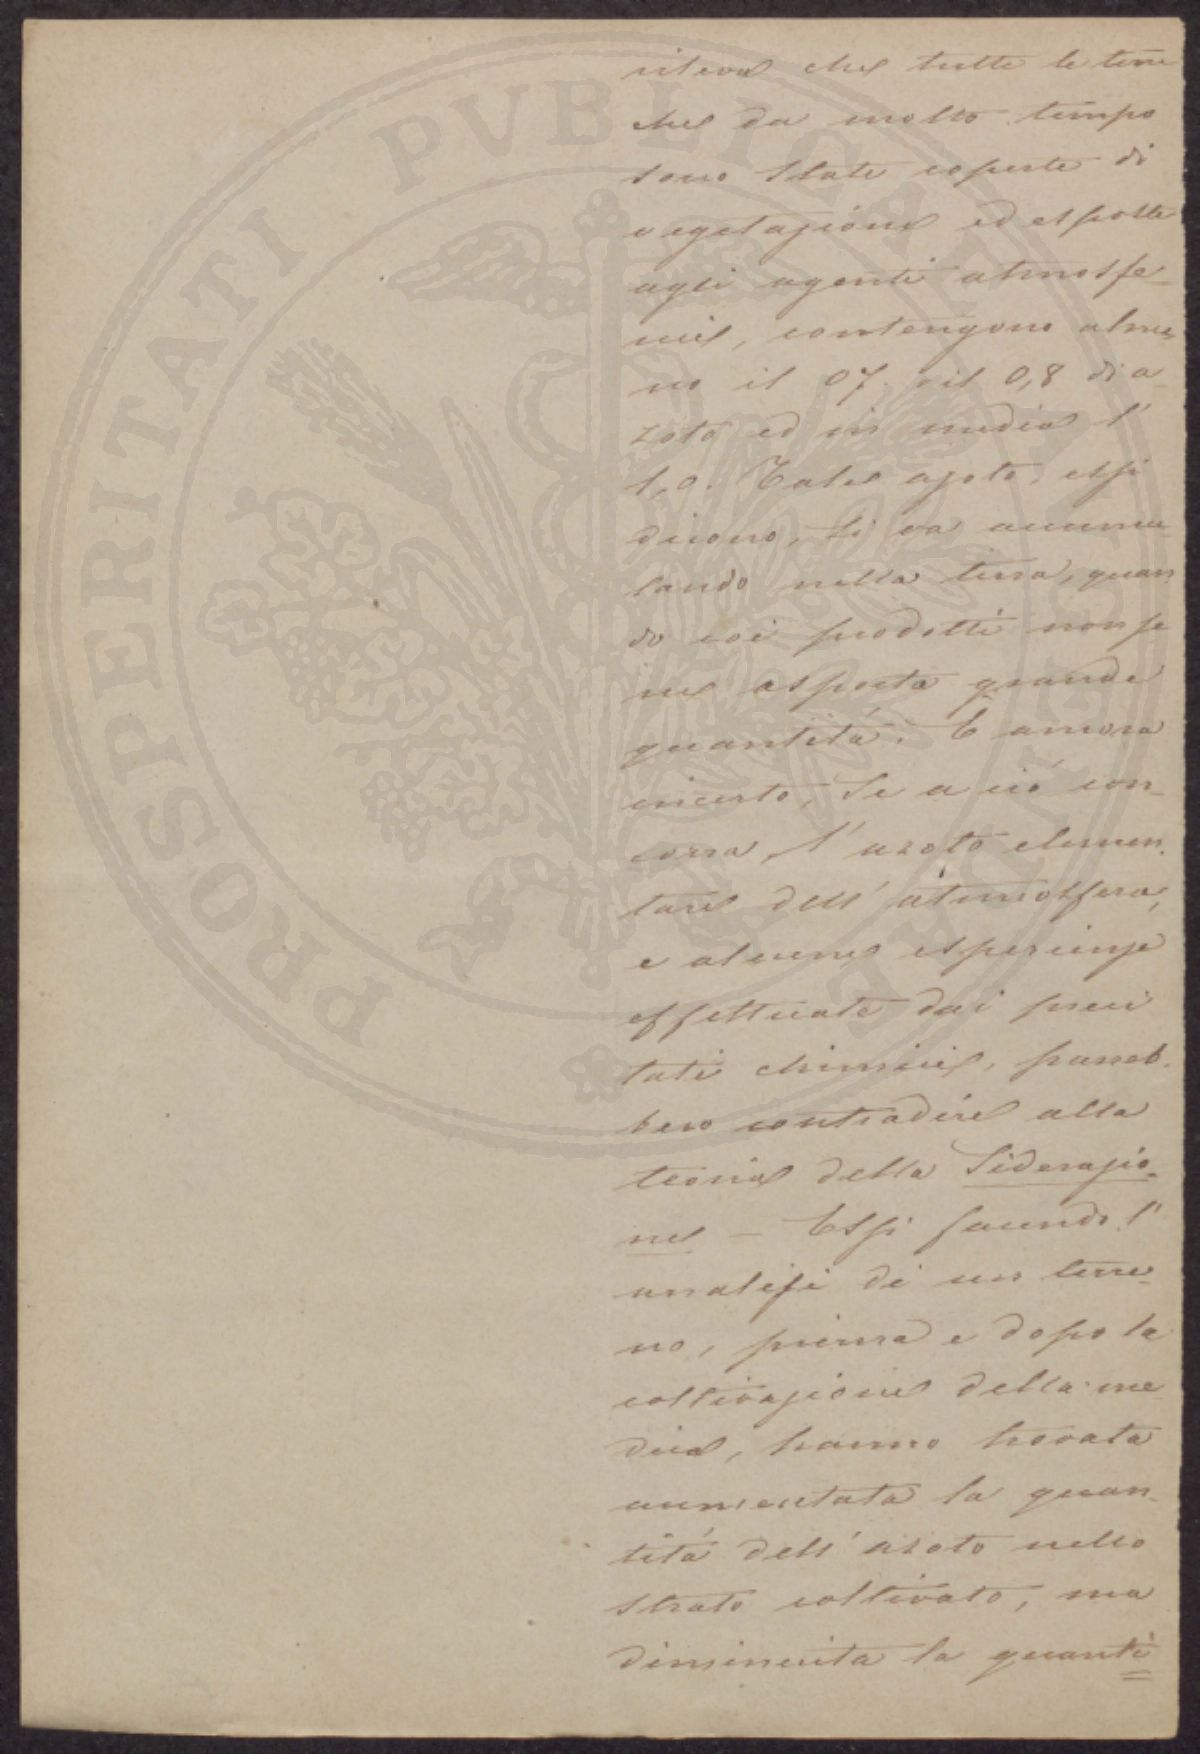 rileva che tutte le terre
che da molto tempo
sono state coperte di
vegetazione ed esposte
agli agenti atmosfe-
rici, contengono alme-
no il 07. o il 0,8 di a-
zoto ed in media l'
1,0. Tale azoto, essi
dicono, si va accumu-
lando nella terra, quan
do coi prodotti non se
ne asporta grande
quantità. È ancora
incerto, se a ciò con-
corra, l'azoto elemen-
tare dell'atmosfera,
e alcune esperienze
effettuate dai preci
tati chimici, parreb-
bero contradire alla
teoria della Siderazio-
ne – Essi facendo l'
analisi di un terre-
no, prima e dopo la
coltivazione della me
dica, hanno trovata
aumentata la quan-
tità dell'azoto nello
strato coltivato, ma
diminuita la quanti
PROSPERITATI PVBLICAE